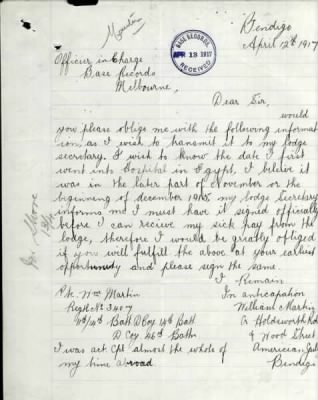 Bendigo
April 12th 1917
BASE RECORDS.
APR 13 1917
RECEIVED
Officier in Charge
Base Records
Melbourne,
Dear Sir,
would
you please oblige me with the following informat-
ion, as I wish to transmit it to my lodge
secretary. I wish to know the date I first
went into Hospital in Egypt, I beleive it
was in the later part of November or the
beginning of december 1915. my lodge Secretary
informs me I must have it signed officially
before I can recieve my sick pay from the
lodge, therefore I would be greatly obliged
if you will fulfill the above at your earliest
opportunity and please sign the same.
I Remain
In anticapation
William Martin
Cr Holdsworth Rd
& Wood Street
American
Bendigo
Pte Wm Martin
Regt No 3407
Batt D Coy 14th Batt
D Coy 46th Battn
I was act. Cpl almost the whole of
my time abroad.